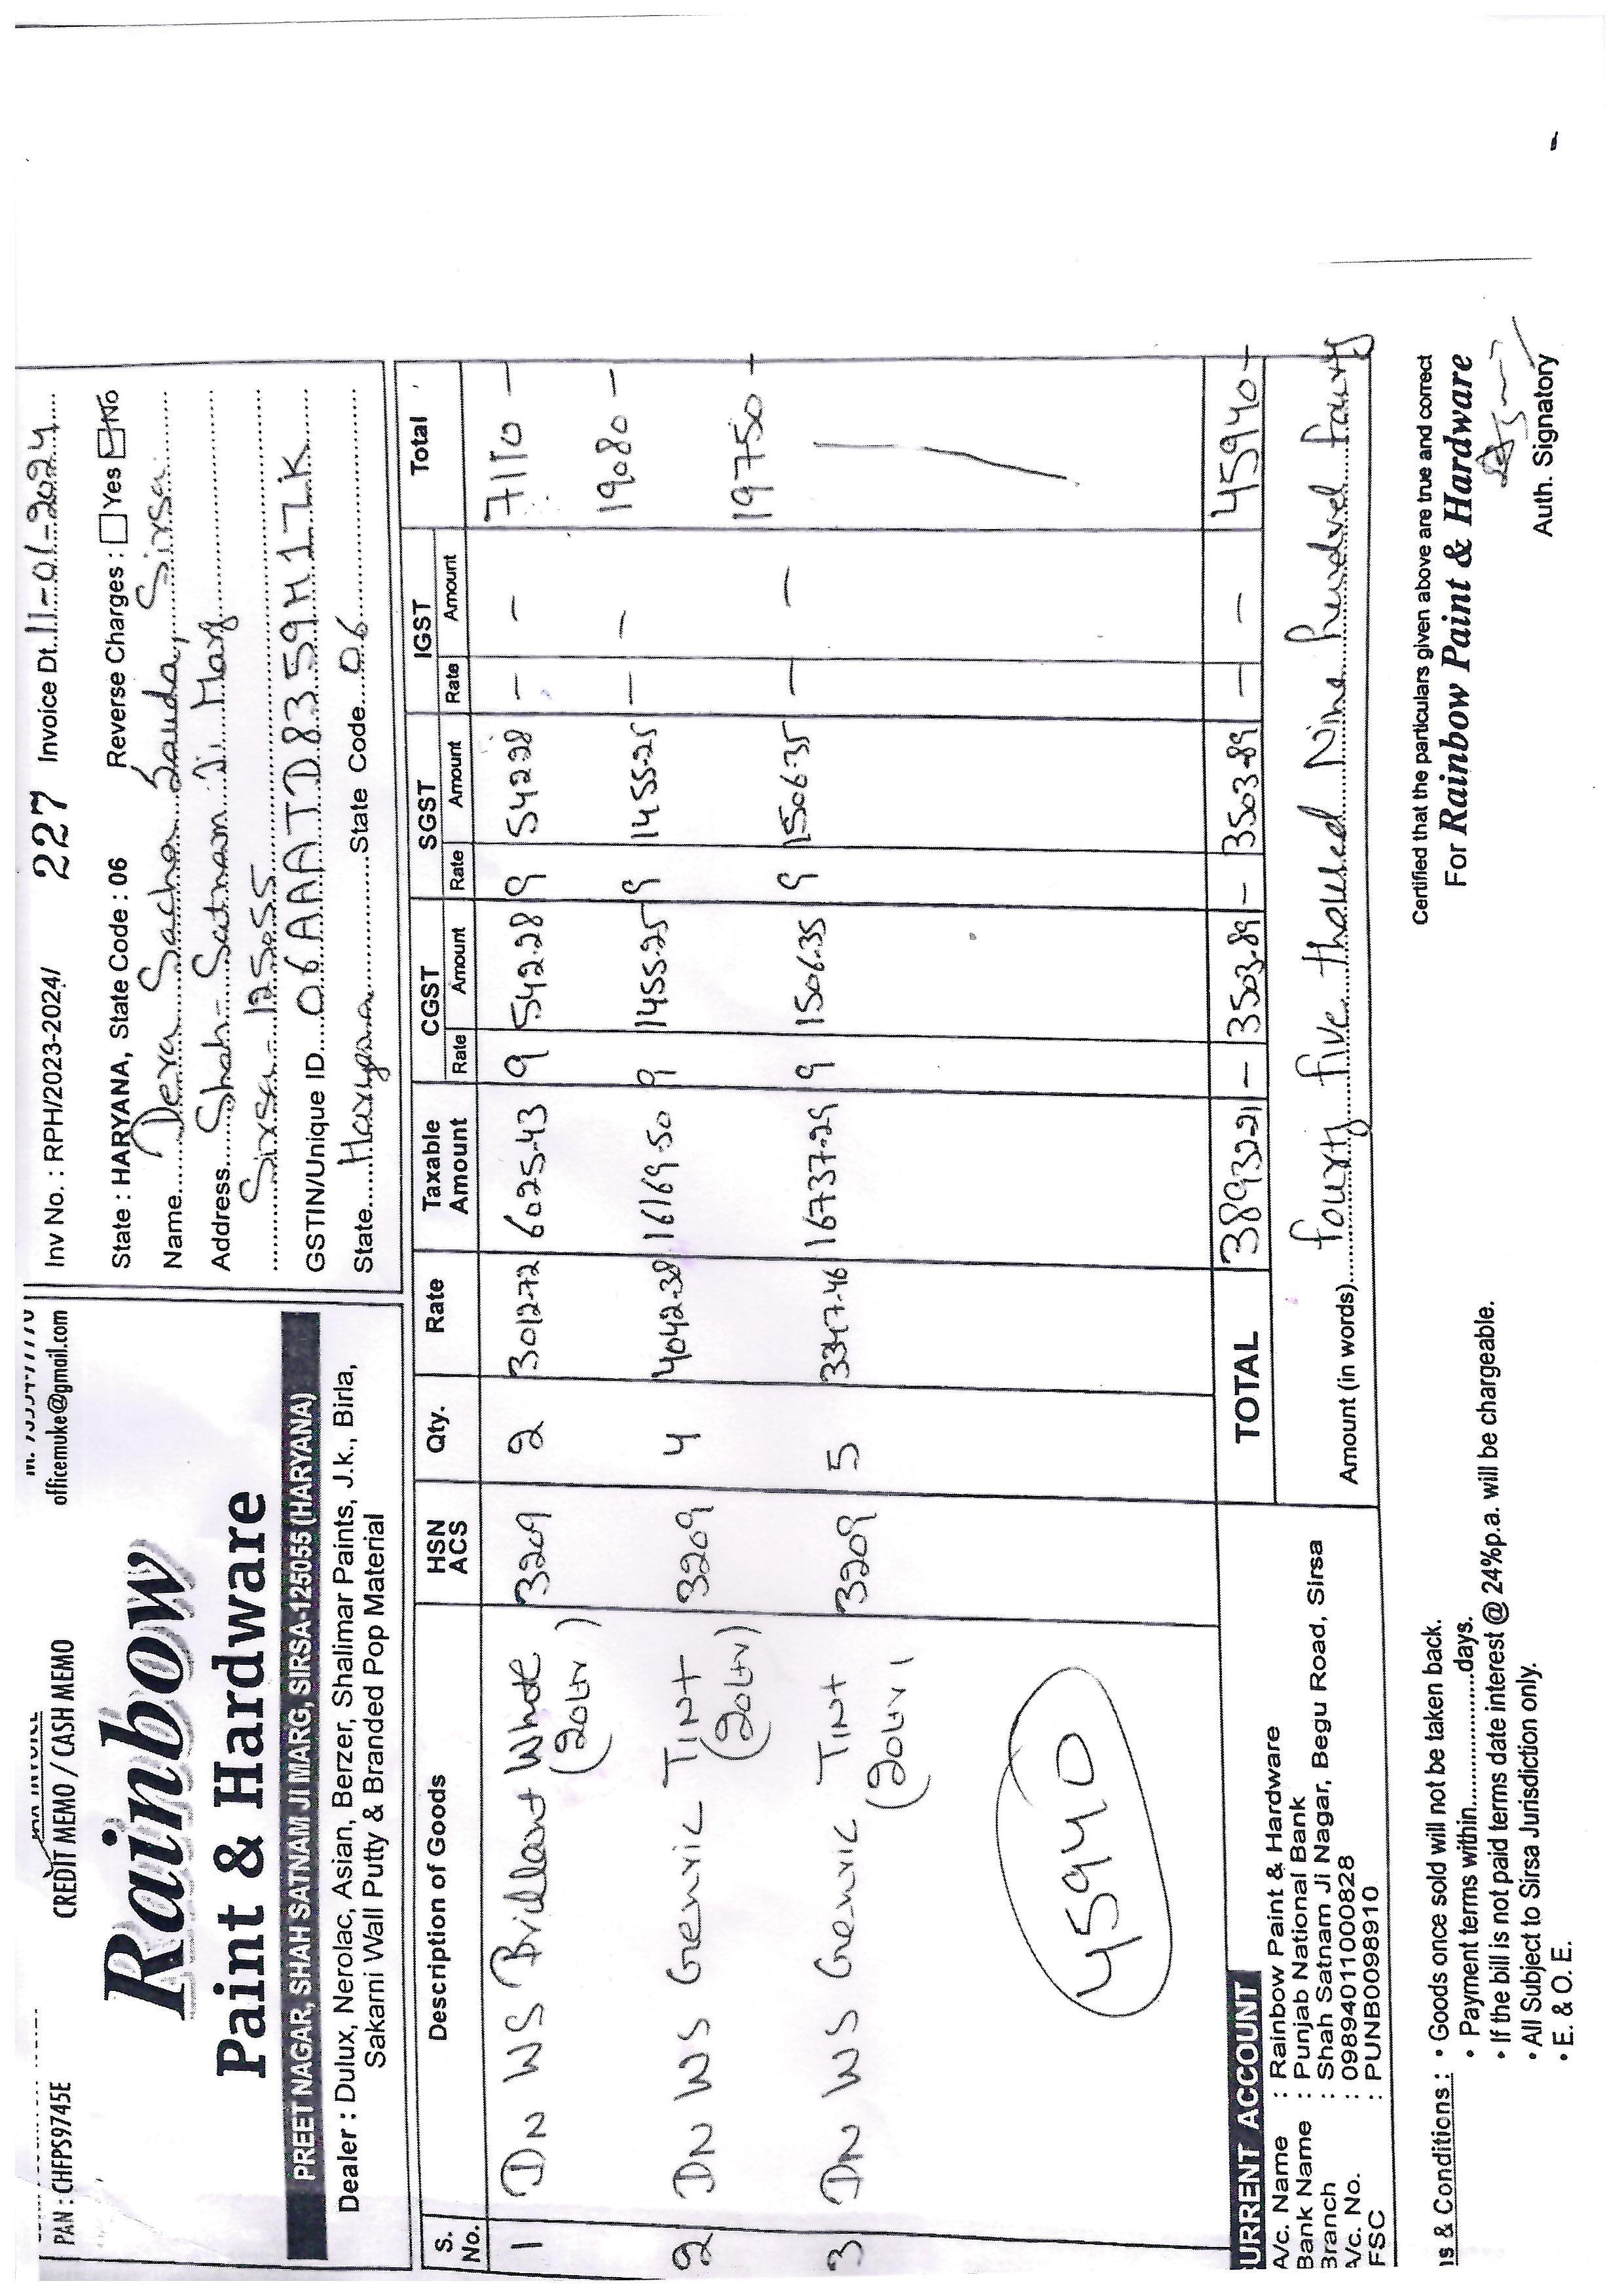 PAN : CHFPS9745E
CREDIT MEMO / CASH MEMO
officemuke@gmail.com
Rainbow
Paint & Hardware
PREET NAGAR, SHAH SATNAM JI MARG, SIRSA-125055 (HARYANA)
Dealer : Dulux, Nerolac, Asian, Berzer, Shalimar Paints, J.k., Birla,
Sakarni Wall Putty & Branded Pop Material
Inv No. : RPH/2023-2024/ 227 Invoice Dt. 11-01-2024
State : HARYANA, State Code : 06 Reverse Charges : Yes No
Name Dera Sacha Sauda, Sirsa
Address Shah-Satnam Ji Marg
Sirsa-125055
GSTIN/Unique ID 06AAATD8359H1ZK
State Haryana State Code 06
S. No. Description of Goods HSN ACS Qty. Rate Taxable Amount CGST SGST IGST Total
Rate Amount Rate Amount Rate Amount
1 DN WS Brilleant White 3209 2 3012-72 6025-43 9 542-28 9 542-28 - - 7110 -
(20Ltr)
2 DN WS Grenric TINT 3209 4 4042-38 16169-50 9 1455-25 9 1455-25 - - 19080 -
(20Ltr)
3 DN WS Grenric TINT 3209 5 3347-46 16737-29 9 1506-35 9 1506-35 - - 19750 -
(20Ltr)
45940
TOTAL 38932-21 - 3503-89 - 3503-89 - - 45940 -
Amount (in words) fourty five thoused Nine Hundred fourty
URRENT ACCOUNT
A/c. Name : Rainbow Paint & Hardware
Bank Name : Punjab National Bank
Branch : Shah Satnam Ji Nagar, Begu Road, Sirsa
A/c. No. : 0989401100000828
FSC : PUNB0098910
ıs & Conditions : • Goods once sold will not be taken back.
• Payment terms within..................days.
• If the bill is not paid terms date interest @ 24%p.a. will be chargeable.
• All Subject to Sirsa Jurisdiction only.
• E. & O. E.
Certified that the particulars given above are true and correct
For Rainbow Paint & Hardware
Auth. Signatory